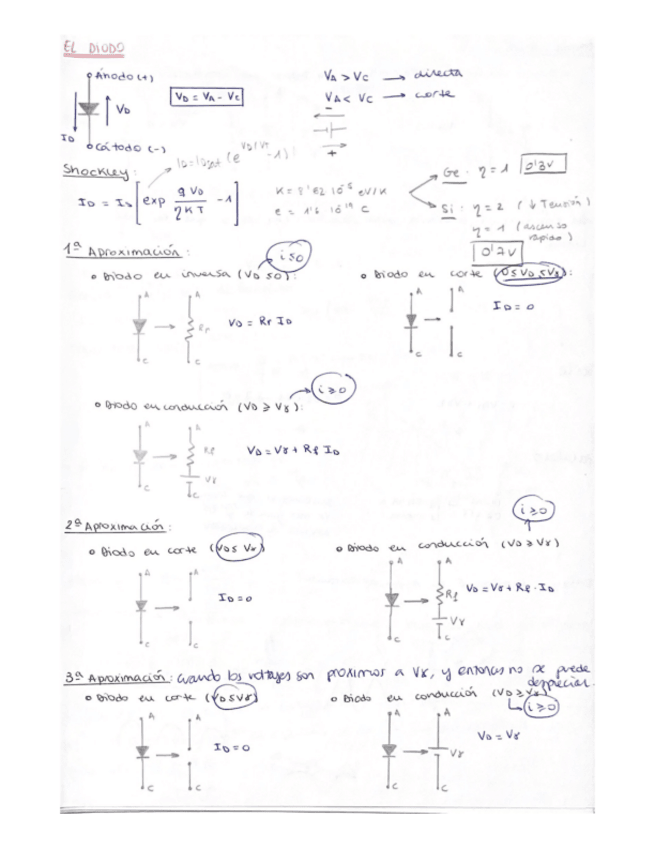 EL DIODO
Ánodo (+)
VD
ID
Cátodo (-)
VD = VA - VC
VA > VC → directa
VA < VC → corte
+
Shockley:
ID = IS [exp q VD / η K T - 1]
K = 8'62 10⁻⁵ eV/K
e = 1'6 10⁻¹⁹ C
Ge: η = 1 0'3V
Si: η = 2 (↓ Tensión)
η = 1 (ascenso rápido)
0'7V
1ª Aproximación:
i ≤ 0
• Diodo en inversa (VD ≤ 0):
A A
Rr
C C
VD = Rr ID
• Diodo en corte (0 ≤ VD ≤ Vγ):
A A
C C
ID = 0
i ≥ 0
• Diodo en conducción (VD ≥ Vγ):
A A
Rf
Vγ
C C
VD = Vγ + Rf ID
2ª Aproximación:
• Diodo en corte (VD ≤ Vγ)
A A
C C
ID = 0
i ≥ 0
• Diodo en conducción (VD ≥ Vγ)
A A
Rf
Vγ
C C
VD = Vγ + Rf · ID
3ª Aproximación: cuando los voltajes son próximos a Vγ, y entonces no se puede despreciar.
• Diodo en corte (VD ≤ Vγ)
A A
C C
ID = 0
• Diodo en conducción (VD ≥ Vγ)
i ≥ 0
A A
Vγ
C C
VD = Vγ